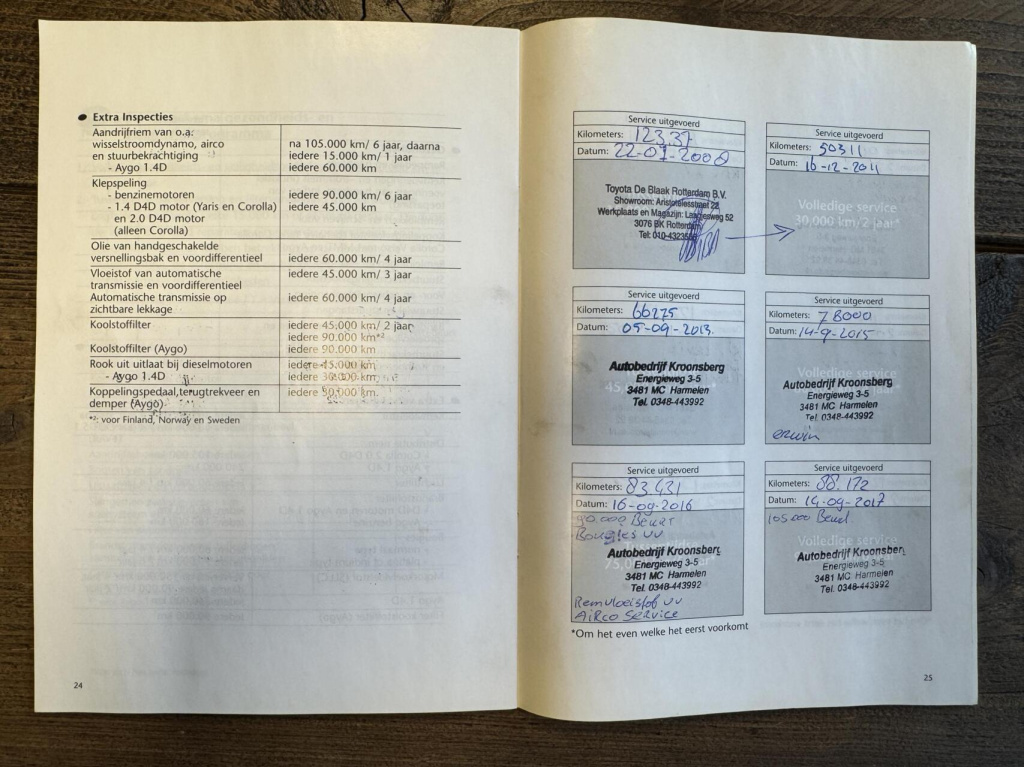 Extra Inspecties
Aandrijfriem van o.a:
wisselstroomdynamo, airco na 105.000 km/ 6 jaar, daarna
en stuurbekrachtiging iedere 15.000 km/ 1 jaar
- Aygo 1.4D iedere 60.000 km
Klepspeling
- benzinemotoren iedere 90.000 km/ 6 jaar
- 1.4 D4D motor (Yaris en Corolla) iedere 45.000 km
en 2.0 D4D motor
(alleen Corolla)
Olie van handgeschakelde
versnellingsbak en voordifferentieel iedere 60.000 km/ 4 jaar
Vloeistof van automatische iedere 45.000 km/ 3 jaar
transmissie en voordifferentieel
Automatische transmissie op iedere 60.000 km/ 4 jaar
zichtbare lekkage
Koolstoffilter iedere 45.000 km/ 2 jaar
iedere 90.000 km*²
Koolstoffilter (Aygo) iedere 90.000 km
Rook uit uitlaat bij dieselmotoren iedere 45.000 km
- Aygo 1.4D iedere 30.000 km
Koppelingspedaal,terugtrekveer en iedere 30.000 km.
demper (Aygo)
*²: voor Finland, Norway en Sweden
24
Service uitgevoerd
Kilometers: 12337
Datum: 22-01-2008
Toyota De Blaak Rotterdam B.V.
Showroom: Aristotelesstraat 22
Werkplaats en Magazijn: Langesweg 52
3076 BK Rotterdam
Tel: 010-432
Service uitgevoerd
Kilometers: 50311
Datum: 16-12-2011
Volledige service
30.000 km/2 jaar*
Service uitgevoerd
Kilometers: 66275
Datum: 05-09-2013
Autobedrijf Kroonsberg
Energieweg 3-5
3481 MC Harmelen
Tel. 0348-443992
Service uitgevoerd
Kilometers: 78000
Datum: 14-9-2015
Autobedrijf Kroonsberg
Energieweg 3-5
3481 MC Harmelen
Tel. 0348-443992
erwin
Service uitgevoerd
Kilometers: 83.431
Datum: 16-09-2016
90.000 Beurt
Bougies VV
Autobedrijf Kroonsberg
Energieweg 3-5
3481 MC Harmelen
Tel. 0348-443992
Remvloeistof VV
AiRco Service
Service uitgevoerd
Kilometers: 88.172
Datum: 14-09-2017
105000 Beurt
Volledige service
Autobedrijf Kroonsberg
Energieweg 3-5
3481 MC Harmelen
Tel. 0348-443992
*Om het even welke het eerst voorkomt
25